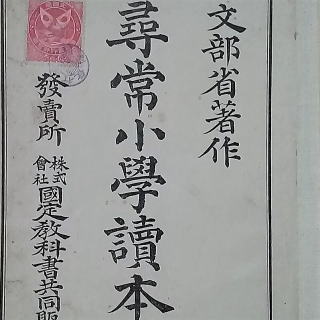 文部省著作
尋常小學讀本
發賣所
株式
會社
國定教科書共同販